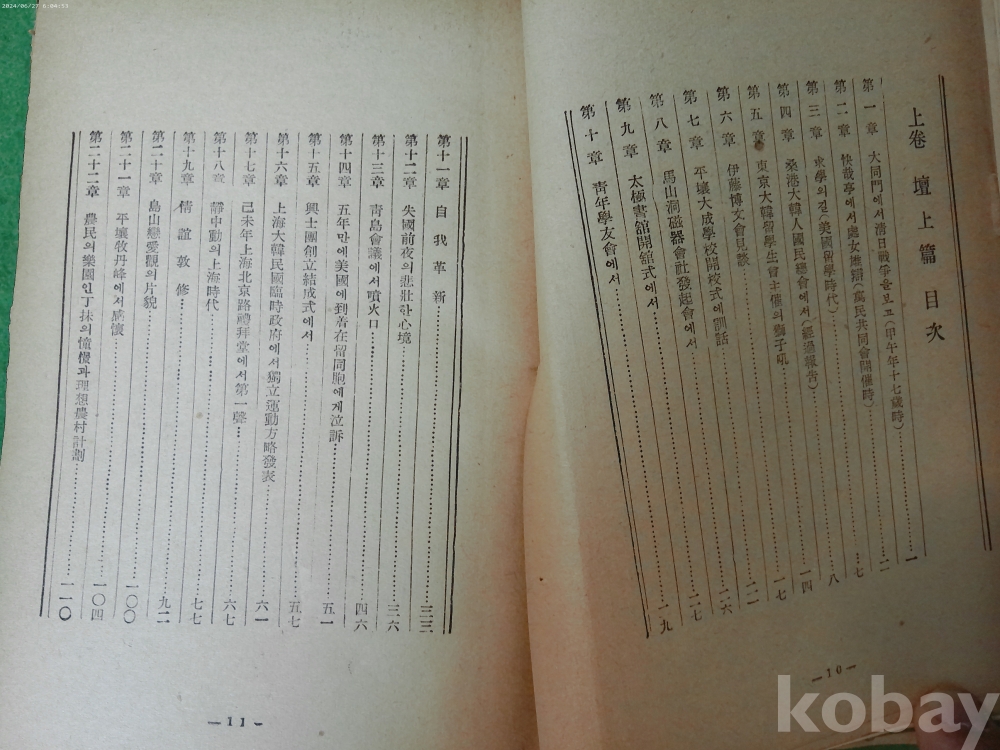 2024/06/27
上卷 壇上篇 目次
第一章 大同門에서淸日戰爭을보고(甲午年十七歲時) 一
第二章 快哉亭에서處女雄辯(萬民共同會開催時) 二
第三章 求學의길(美國留學時代) 七
第四章 桑港大韓人國民總會에서(經過報告) 八
第五章 東京大韓留學生會主催의獅子吼 一四
第六章 伊藤博文會見談 一七
第七章 平壤大成學校開校式에訓話 二二
第八章 馬山洞磁器會社發起會에서 二六
第九章 太極書館開舘式에서 二七
第十章 靑年學友會에서 二九
—10—
第十一章 自我革新 三三
第十二章 失國前夜의悲壯한心境 三六
第十三章 靑島會議에서噴火口 四六
第十四章 五年만에美國에到着在留同胞에게泣訴 五一
第十五章 興士團創立結成式에서 五七
第十六章 上海大韓民國臨時政府에서獨立運動方略發表 六一
第十七章 己未年上海北京路禮拜堂에서第一聲 六七
第十八章 靜中動의上海時代 七七
第十九章 情誼敦修 九二
第二十章 島山戀愛觀의片貌 一〇〇
第二十一章 平壤牧丹峰에서感懷 一〇四
第二十二章 農民의樂園인丁抹의憧憬과理想農村計劃 一一〇
—11—
kobay